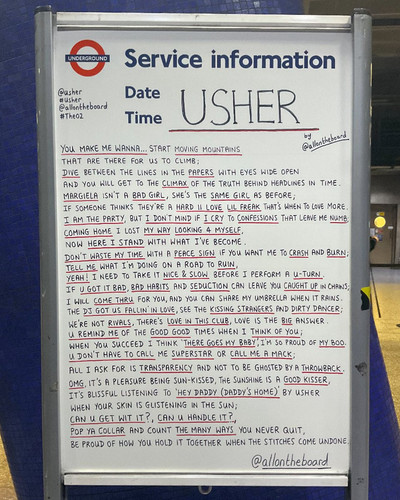 UNDERGROUND
Service information
@usher
#usher
@allontheboard
#TheO2
Date
Time
USHER
by @allontheboard
YOU MAKE ME WANNA... START MOVING MOUNTAINS
THAT ARE THERE FOR US TO CLIMB;
DIVE BETWEEN THE LINES IN THE PAPERS WITH EYES WIDE OPEN
AND YOU WILL GET TO THE CLIMAX OF THE TRUTH BEHIND HEADLINES IN TIME.
MARGIELA ISN'T A BAD GIRL, SHE'S THE SAME GIRL AS BEFORE;
IF SOMEONE THINKS THEY'RE A HARD II LOVE LIL FREAK THAT'S WHEN TO LOVE MORE.
I AM THE PARTY, BUT I DON'T MIND IF I CRY TO CONFESSIONS THAT LEAVE ME NUMB.
COMING HOME I LOST MY WAY LOOKING 4 MYSELF,
NOW HERE I STAND WITH WHAT I'VE BECOME.
DON'T WASTE MY TIME WITH A PEACE SIGN IF YOU WANT ME TO CRASH AND BURN;
TELL ME WHAT I'M DOING ON A ROAD TO RUIN,
YEAH! I NEED TO TAKE IT NICE & SLOW BEFORE I PERFORM A U-TURN.
IF U GOT IT BAD, BAD HABITS AND SEDUCTION CAN LEAVE YOU CAUGHT UP IN CHAINS;
I WILL COME THRU FOR YOU, AND YOU CAN SHARE MY UMBRELLA WHEN IT RAINS.
THE DJ GOT US FALLIN' IN LOVE, SEE THE KISSING STRANGERS AND DIRTY DANCER;
WE'RE NOT RIVALS, THERE'S LOVE IN THIS CLUB, LOVE IS THE BIG ANSWER.
U REMIND ME OF THE GOOD GOOD TIMES WHEN I THINK OF YOU;
WHEN YOU SUCCEED I THINK 'THERE GOES MY BABY', I'M SO PROUD OF MY BOO.
U DON'T HAVE TO CALL ME SUPERSTAR OR CALL ME A MACK;
ALL I ASK FOR IS TRANSPARENCY AND NOT TO BE GHOSTED BY A THROWBACK.
OMG, IT'S A PLEASURE BEING SUN-KISSED, THE SUNSHINE IS A GOOD KISSER,
IT'S BLISSFUL LISTENING TO 'HEY DADDY (DADDY'S HOME)' BY USHER
WHEN YOUR SKIN IS GLISTENING IN THE SUN;
CAN U GET WIT IT?, CAN U HANDLE IT?,
POP YA COLLAR AND COUNT THE MANY WAYS YOU NEVER QUIT,
BE PROUD OF HOW YOU HOLD IT TOGETHER WHEN THE STITCHES COME UNDONE.
@allontheboard